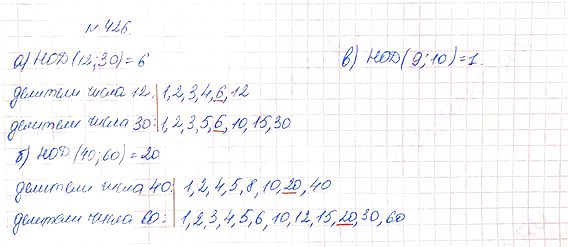 № 426.
а) НОД(12;30)=6
делители числа 12: 1,2,3,4,6,12
делители числа 30: 1,2,3,5,6,10,15,30
б) НОД(40;60)=20
делители числа 40: 1,2,4,5,8,10,20,40
делители числа 60: 1,2,3,4,5,6,10,12,15,20,30,60
в) НОД(9;10)=1.